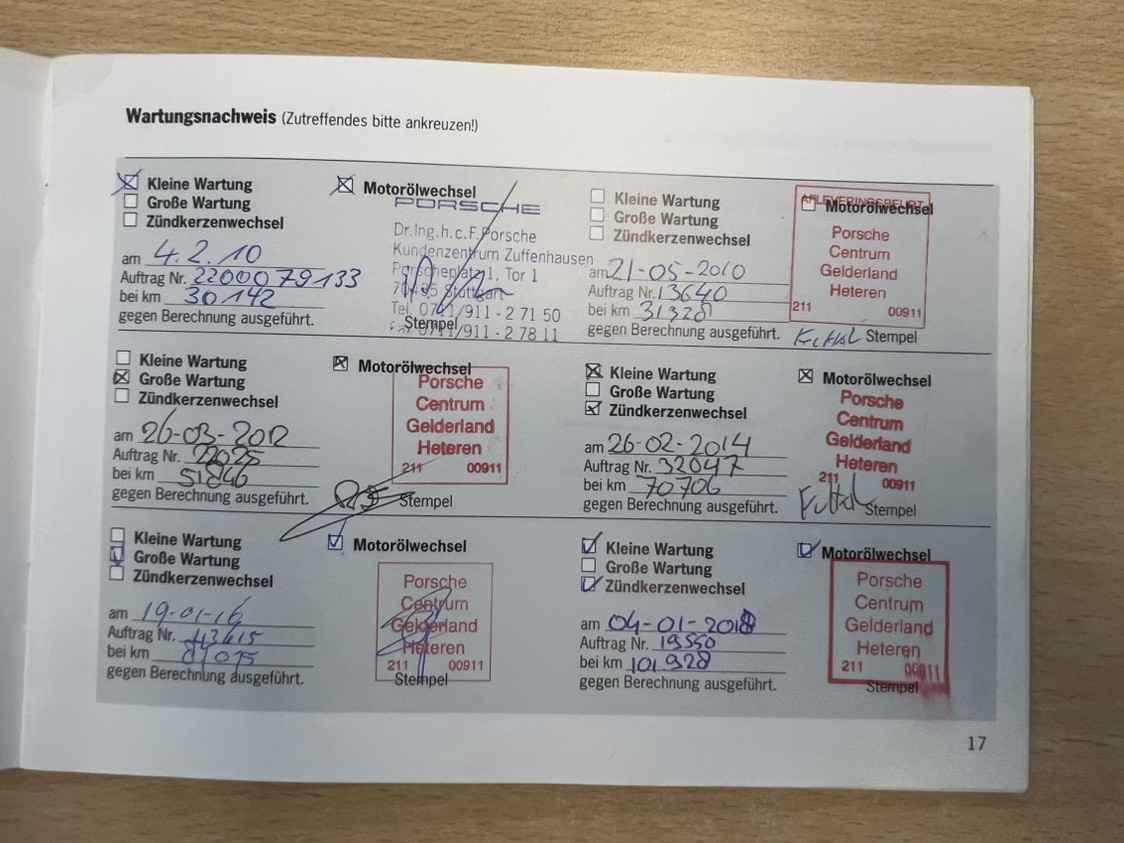 Wartungsnachweis (Zutreffendes bitte ankreuzen!)
Kleine Wartung
Große Wartung
Zündkerzenwechsel
am 4.2.10
Auftrag Nr. 2200079133
bei km 30142
gegen Berechnung ausgeführt.
Motorölwechsel
PORSCHE
Dr.Ing.h.c.F.Porsche
Kundenzentrum Zuffenhausen
Porscheplatz 1, Tor 1
Stuttgart
Tel. 0711/911 - 2 71 50
0711/911 - 2 78 11
Stempel
Kleine Wartung
Große Wartung
Zündkerzenwechsel
am 21-05-2010
Auftrag Nr. 13640
bei km 31328
gegen Berechnung ausgeführt.
AFLEVERINGSBEURT
Motorölwechsel
Porsche
Centrum
Gelderland
Heteren
211 00911
Stempel
Kleine Wartung
Große Wartung
Zündkerzenwechsel
am 26-03-2012
Auftrag Nr.
bei km 51846
gegen Berechnung ausgeführt.
Motorölwechsel
Porsche
Centrum
Gelderland
Heteren
211 00911
Stempel
Kleine Wartung
Große Wartung
Zündkerzenwechsel
am 26-02-2014
Auftrag Nr. 32047
bei km 70706
gegen Berechnung ausgeführt.
Motorölwechsel
Porsche
Centrum
Gelderland
Heteren
211 00911
Stempel
Kleine Wartung
Große Wartung
Zündkerzenwechsel
am 19-01-16
Auftrag Nr.
bei km
gegen Berechnung ausgeführt.
Motorölwechsel
Porsche
Centrum
Gelderland
Heteren
211 00911
Stempel
Kleine Wartung
Große Wartung
Zündkerzenwechsel
am 04-01-2018
Auftrag Nr. 19550
bei km 101928
gegen Berechnung ausgeführt.
Motorölwechsel
Porsche
Centrum
Gelderland
Heteren
211 00911
Stempel
17